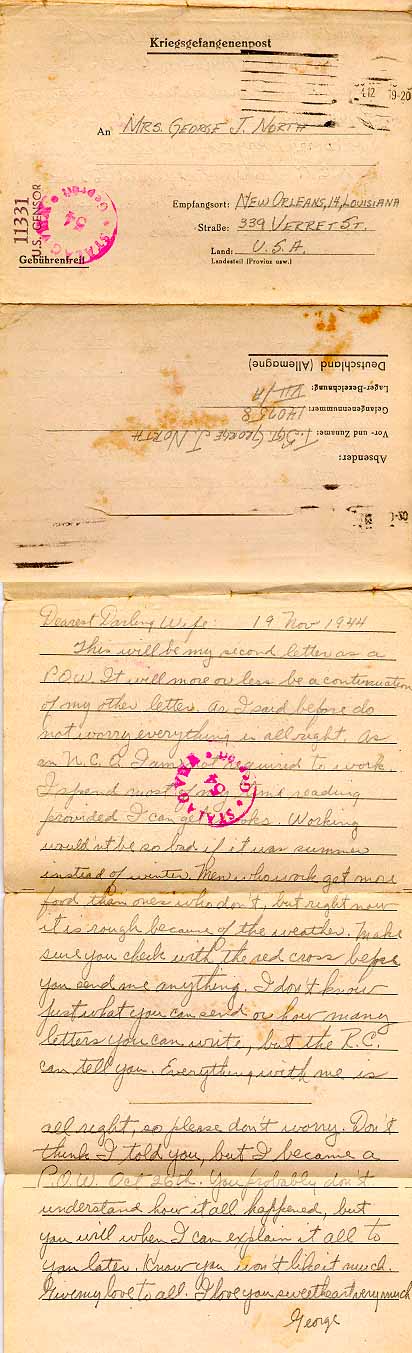 Kriegsgefangenenpost
12 19-20
An Mrs. George J. North
11331
U.S. CENSOR
STALAG VII A
54
Geprüft
Empfangsort: New Orleans, 14, Louisiana
Straße: 339 Verret St.
Gebührenfrei
Land: U.S.A.
Landesteil (Provinz usw.)
Deutschland (Allemagne)
Lager-Bezeichnung: VII/A
Gefangenennummer:
Vor- und Zuname: T. Sgt. George J. North
Absender:
Dearest Darling Wife: 19 Nov 1944
This will be my second letter as a
P.O.W. It will more or less be a continuation
of my other letter. As I said before do
not worry everything is allright. As
an N.C.O. I am not required to work.
I spend most of my time reading
provided I can get books. Working
would'nt be so bad if it was summer
instead of winter. Men who work get more
food than ones who don't, but right now
it is rough because of the weather. Make
sure you check with the red cross before
you send me anything. I don't know
just what you can send or how many
letters you can write, but the R.C.
can tell you. Everything with me is
STALAG VII A
54
Geprüft
all right, so please don't worry. Don't
think I told you, but I became a
P.O.W. Oct 26th. You probably don't
understand how it all happened, but
you will when I can explain it all to
you later. Know you won't like it much.
Give my love to all. I love you sweetheart very much
George